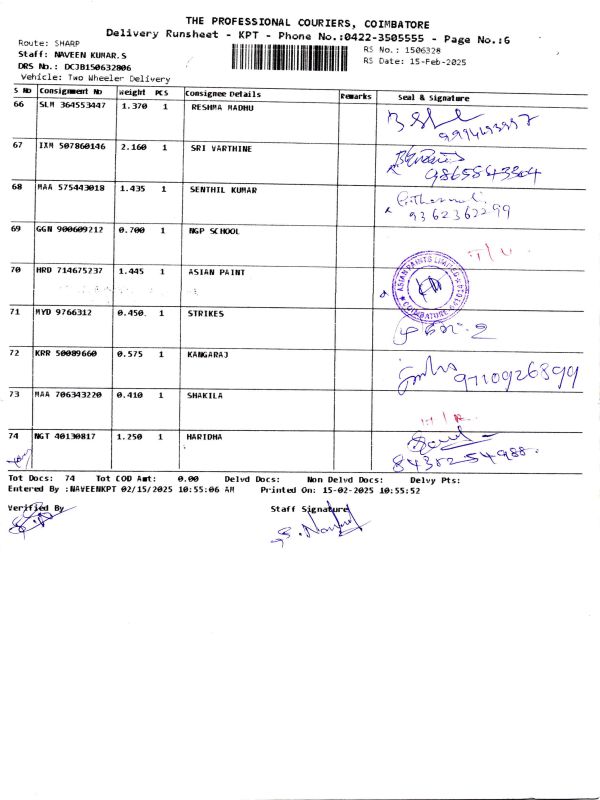 THE PROFESSIONAL COURIERS, COIMBATORE
Delivery Runsheet - KPT - Phone No.:0422-3505555 - Page No.:6
Route: SHARP
Staff: NAVEEN KUMAR.S
DRS No.: DCJB150632806
Vehicle: Two Wheeler Delivery
RS No.: 1506328
RS Date: 15-Feb-2025
S No Consignment No Weight PCS Consignee Details Remarks Seal & Signature
66 SLM 364553447 1.370 1 RESHMA MADHU
67 IXM 507860146 2.160 1 SRI VARTHINE
9865843304
68 MAA 575443018 1.435 1 SENTHIL KUMAR
9362362299
69 GGN 900609212 0.700 1 NGP SCHOOL
70 HRD 714675237 1.445 1 ASIAN PAINT
ASIAN PAINTS LIMITED
COIMBATORE
71 MYD 9766312 0.450 1 STRIKES
72 KRR 50089660 0.575 1 KANGARAJ
9710926899
73 MAA 706343220 0.410 1 SHAKILA
74 NGT 40130817 1.250 1 HARIDHA
8438254988
Tot Docs: 74 Tot COD Amt: 0.00 Delvd Docs: Non Delvd Docs: Delvy Pts:
Entered By :NAVEENKPT 02/15/2025 10:55:06 AM Printed On: 15-02-2025 10:55:52
Verified By Staff Signature